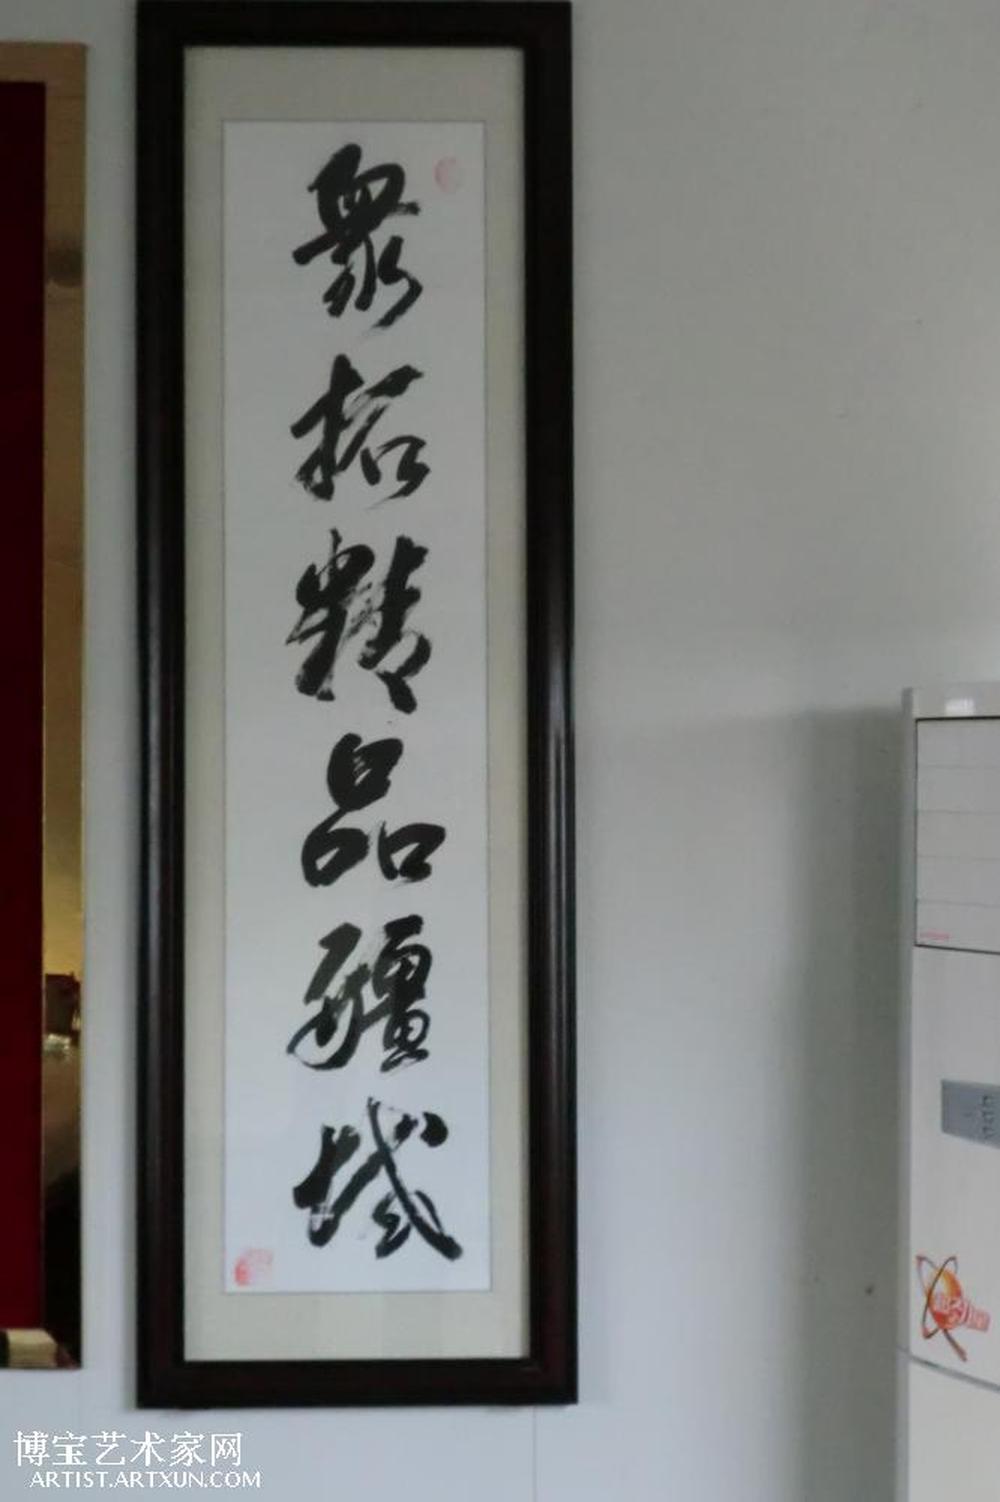 眾拓精品疆域
博宝艺术家网
ARTIST.ARTXUN.COM